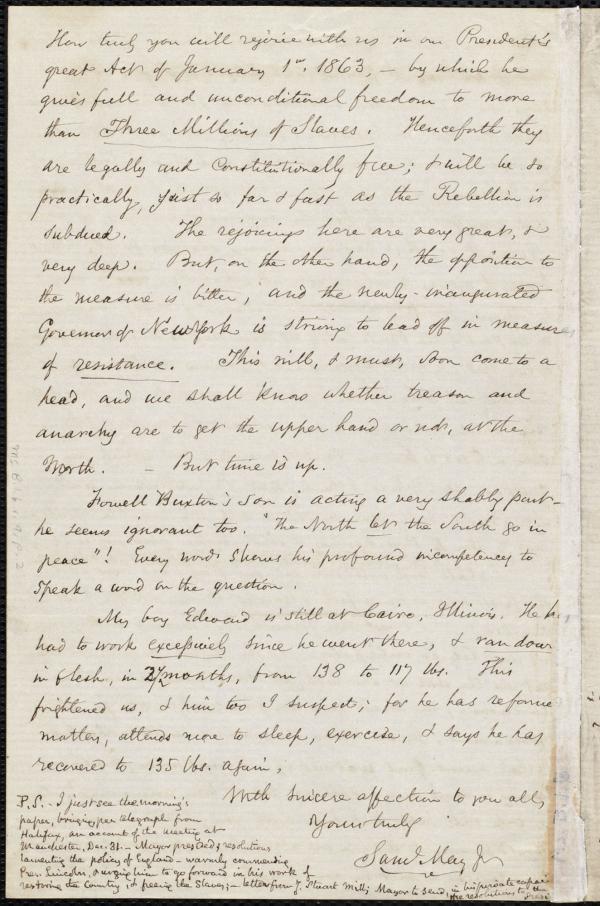 How truly you will rejoice with us in our President's
great Act of January 1st. 1863, — by which he
gives full and unconditional freedom to more
than Three Millions of Slaves. Henceforth they
are legally and Constitutionally free; & will be so
practically, just so far & fast as the Rebellion is
subdued. The rejoicings here are very great, &
very deep. But, on the other hand, the opposition to
the measure is bitter; and the newly-inaugurated
Governor of New York is striving to lead off in measures
of resistance. This will, & must, soon come to a
head, and we shall know whether treason and
anarchy are to get the upper hand or not, at the
North. — But time is up.
Fowell Buxton's son is acting a very shabby part —
he seems ignorant too. "The North let the South go in
peace"! Every word shows his profound incompetency to
speak a word on the question.
My boy Edward is still at Cairo, Illinois. He has
had to work excessively since he went there, & ran down
in flesh, in 2½ months, from 138 to 117 lbs. This
frightened us, & him too I suspect; for he has reformed
matters, attends more to sleep, exercise, & says he has
recovered to 135 lbs. again.
With sincere affection to you all,
Yours truly
Saml. May Jr
P.S. - I just see the morning's
paper, bringing, per telegraph from
Halifax, an account of the meeting at
Manchester, Dec. 31. - Mayor presided; resolutions
lamenting the policy of England - warmly commending
Pres. Lincoln, & urging him to go forward in his work of
restoring the Country, & freeing the Slaves; - letter from J. Stuart Mill; Mayor to send, in his private
the resolutions to the